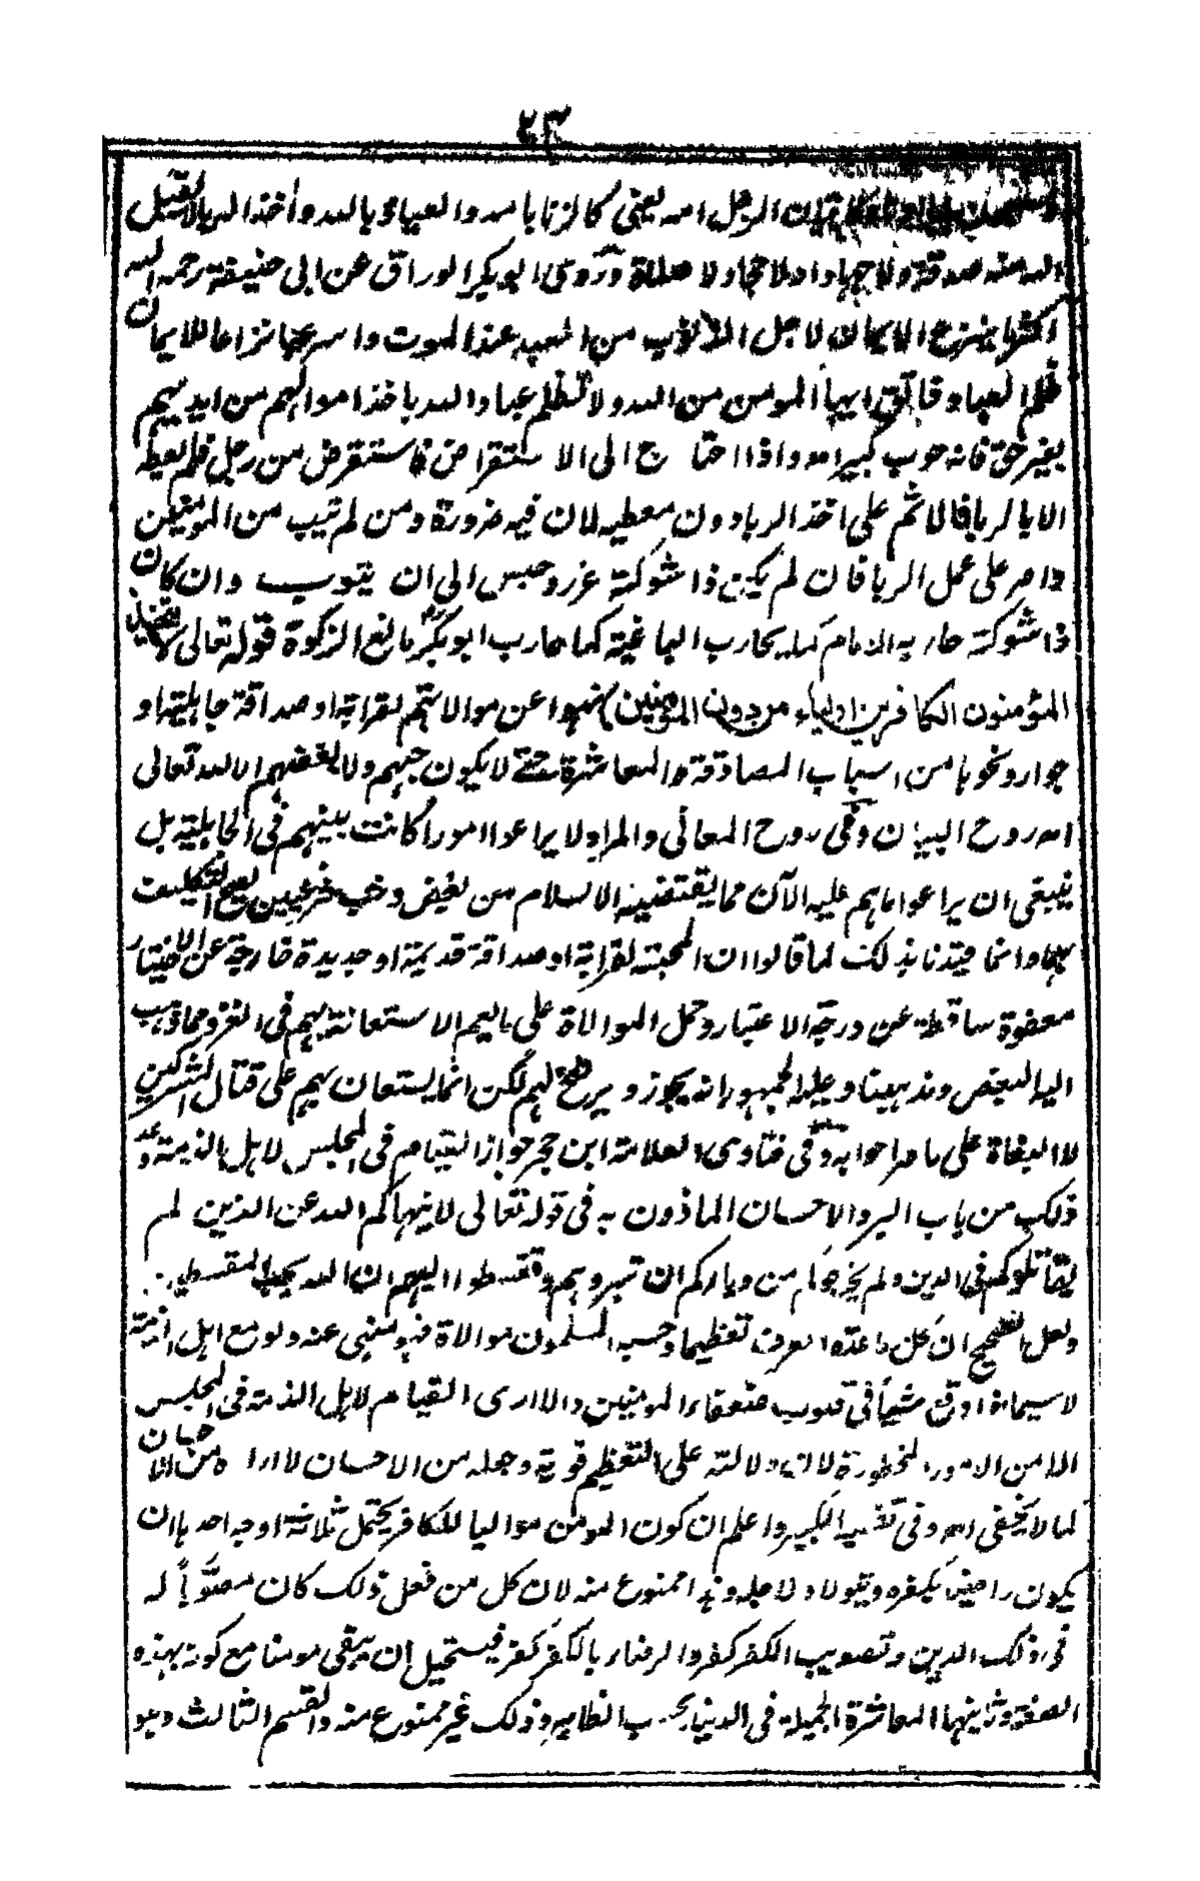 ٢٣
الرجل اهـ يعنى كالزنا بامه والعياذ بالله وأخذ الربا لا يقبل
الله منه صدقة ولا جهادا ولا حجا ولا صلاة وروى ابو بكر الوراق عن ابى حنيفة رحمه الله
اكثر ما ينزع الايمان لاجل الذنوب من العبد عند الموت واسرعها نزاعا للايمان
ظلم العباد فاتق ايها المومن من الله ولا تظلم عباد الله باخذ اموالهم من ايديهم
بغير حق فانه حوب كبير اهـ واذا احتاج الى الاستقراض فاستقرض من رجل فلم يعطه
الا بالربا فالاثم على اخذ الربا دون معطيه لان فيه ضرورة ومن لم يتب من المؤمنين
واصر على عمل الربا فان لم يكن ذا شوكة عزر وحبس الى ان يتوب وان كان
ذا شوكة حاربه الامام كما يحارب الباغية كما حارب ابو بكر مانع الزكوة قوله تعالى لا يتخذ
المؤمنون الكافرين اولياء من دون المؤمنين نهوا عن موالاتهم لقرابة او صداقة جاهلية او
جوار ونحوها من اسباب المصادقة والمعاشرة حتى لا يكون حبهم ولا بغضهم الا لله تعالى
اهـ روح البيان وفى روح المعانى والمراد لا يراعوا امورا كانت بينهم فى الجاهلية بل
ينبغى ان يراعوا ما هم عليه الآن مما يقتضيه الاسلام من بغض وحب شرعيين يصح التكليف
بهما وانما قيدنا بذلك لما قالوا ان المحبة لقرابة او صداقة قديمة او جديدة خارجة عن الاختيار
معفوة ساقطة عن درجة الاعتبار وحمل الموالاة على ما يعم الاستعانة بهم فى الغزو مما ذهب
اليه البعض ومذهبنا وعليه الجمهور انه يجوز ويرضخ لهم لكن انما يستعان بهم على قتال المشركين
لا البغاة على ما صرحوا به وفى فتاوى العلامة ابن حجر جواز القيام فى المجلس لاهل الذمة وعد
ذلك من باب البر والاحسان الماذون به فى قوله تعالى لا ينهاكم الله عن الذين لم
يقاتلوكم فى الدين ولم يخرجوكم من دياركم ان تبروهم وتقسطوا اليهم ان الله يحب المقسطين
ولعل الصحيح ان كل ما عده العرف تعظيما وحسبه المسلمون موالاة فهو منهى عنه ولو مع اهل الذمة
لا سيما اذا اوقع شيئا فى قلوب ضعفاء المومنين والا ارى القيام لاهل الذمة فى المجلس
الا من الامور المحظورة لان دلالته على التعظيم قوية وجعله من الاحسان لا اراه من الاحسان
لما لا يخفى اهـ وفى تفسير الكبير واعلم ان كون المومن مواليا للكافر يحتمل ثلاثة اوجه احدها ان
يكون راضيا بكفره ويتولاه لاجله وهذا ممنوع منه لان كل من فعل ذلك كان مصوبا له
فى ذلك الدين وتصويب الكفر كفر والرضاء بالكفر كفر فيستحيل ان يبقى مومنا مع كونه بهذه
الصفة وثانيها المعاشرة الجميلة فى الدنيا بحسب الظاهر وذلك غير ممنوع منه والقسم الثالث وهو